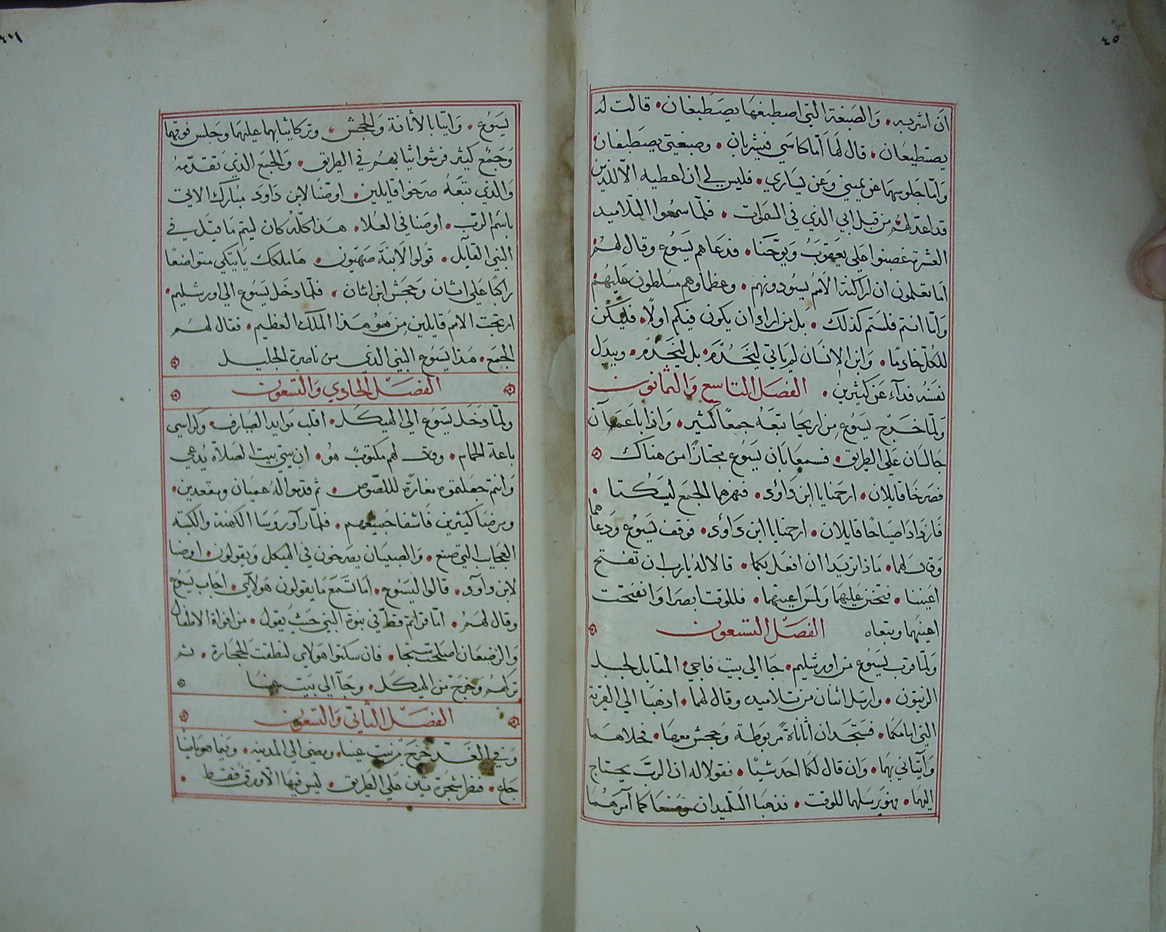 ٤٥
ان اشربه • والصبغة التي اصطبغها يصطبغان • قالت له
يصتطيعان • قال لهما اما كاسي فيشربان • وصبغتي يصطبغان
واما جلوسهما عن يميني وعن يساري • فليس لي ان اعطيه الا للذين
قد اعد لهم من قبل ابي الذي في السموات • فلما سمعوا التلاميد
العشره غضبوا على يعقوب ويوحنا • فدعاهم يسوع وقال لهم
اما تعلمون ان اراكنة الامم يسودونهم • وعظماوهم مسلطون عليهم
واما انتم فلستم كذلك • بل من اراد ان يكون فيكم اولا • فليكن
للكل خادما • وابن الانسان لم ياتي ليُخدَم • بل ليَخدم • ويبدل
نفسه فداء عن كثيرين • الفصل التاسع والثمانون
ولما خرج يسوع من اريحا تبعه جمعا كثير • واذا باعميان
جالسان على الطريق • فسمعا بان يسوع مجتازا من هناك
فصرخا قايلان • ارحمنا يا ابن داوُد • فنهرهما الجمع ليسكتا •
فازدادا صياحا قايلان • ارحمنا يا ابن داوُد • فوقف يسوع ودعاهما
وقال لهما • ماذا تريدا ان افعل بكما • قالا له يارب ان تفتح
اعيننا • فتحنن عليهما ولمس اعينهما • فللوقت ابصرا وانفتحت
اعينهما وتبعاه الفصل التسعون
ولما قرب يسوع من اورشليم • جا الى بيت فاجي المقابل لجبل
الزيتون • وارسل اثنان من تلاميده وقال لهما • اذهبا الى القرية
التي امامكما • فستجدان اتانة مربوطة وجحش معها • فحلاهما
وآتياني بهما • وان قال لكما احد شيئا • فقولا له ان الرب يحتاج
اليهما • فهو يرسلهما للوقت • فذهبا التلميدان فصنعا كما آمرهما
٤٦
يسوع • واتيا بالاتانة والجحش • وتركا ثيابهما عليهما وجلس فوقهما
وجمع كثير فرشوا ثيابهم في الطريق • والجمع الذي تقدمه
والذي تبعه صرخوا قايلين • اوصنا لابن داوُد مبارك الاتي
باسم الرب • اوصنا في العلا • هذا كله كان ليتم ما قيل في
النبي القايل • قولوا لابنة صهيون • ها ملكك ياتيكي متواضعا
راكبا على اتان وجحش ابن اتان • فلما دخل يسوع الى اورشليم •
ارتجت الامم قايلين من هو هذا الملك العظيم • فقال لهم
الجمع • هذا يسوع النبي الذي من ناصرة الجليل
الفصل الحادي والتسعون
ولما دخل يسوع الى الهيكل • اقلب موايد الصيارف • وكراسي
باعة الحمام • وقال لهم مكتوب هو • ان بيتي بيت الصلاة يدعى
وانتم جعلتموه مغارة للصوص • ثم قدموا له عميان ومقعدين •
ومرضا كثيرين فاشفا جميعهم • فلما راو روسا الكهنة والكتبة
العجايب التي صنع • والصبيان يصرخون في الهيكل ويقولون • اوصنا
لابن داوُد • قالوا ليسوع • اما تسمع ما يقولون هولاي • اجاب يسوع
وقال لهم • اما قراتم قط في نبوة النبي حيث يقول • من افواة الاطفال
والرضعان اصلحت سبحا • فان سكتوا هولاي لنطقت الحجارة • ثم
تركهم وخرج من الهيكل • وجآ الى بيت عنيا
الفصل الثاني والتسعون
وفي الغد خرج من بيت عنيا • ومضى الى المدينه • وفيما هو ماشيا
جاع • فنظر شجرة تين على الطريق • ليس فيها الا ورق فقط •